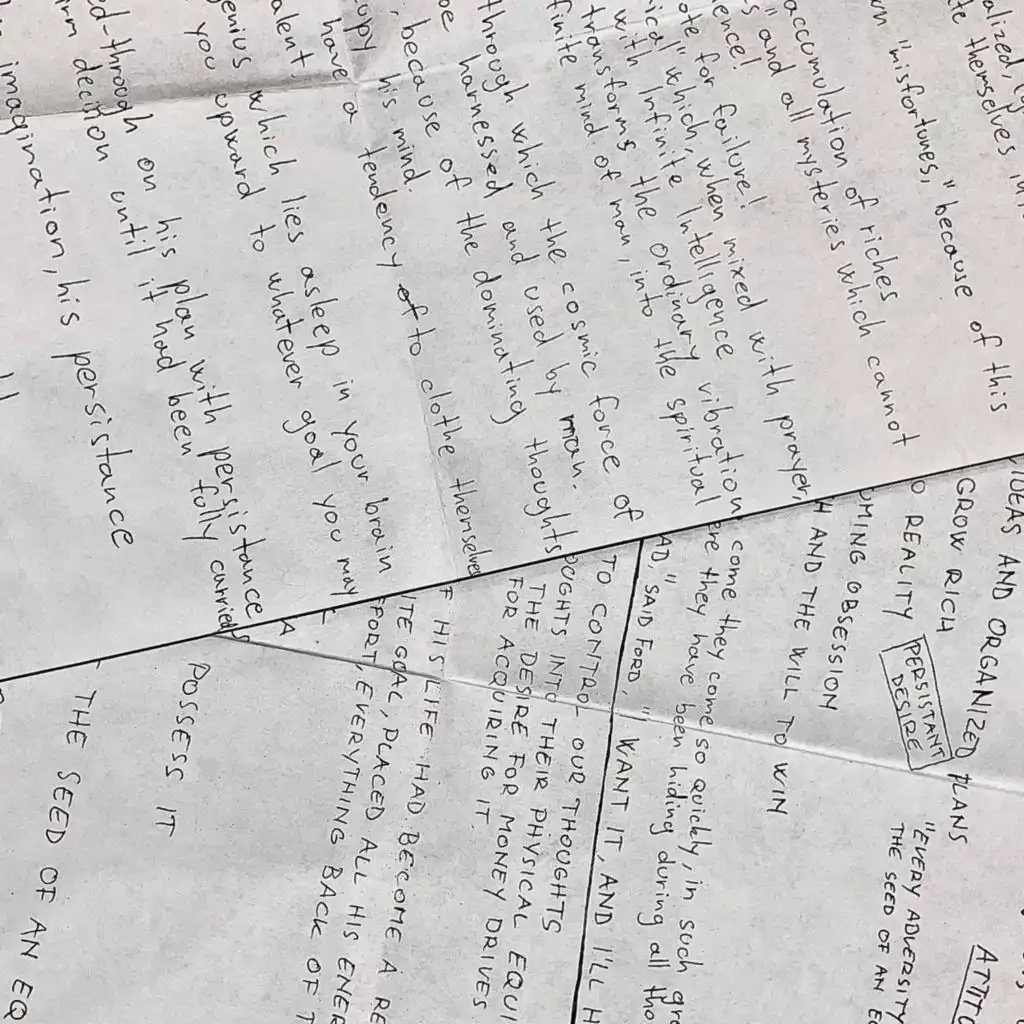 alized,
te themselves
wn "misfortunes," because of this
accumulation of riches which cannot
" and all mysteries which cannot
ence!
ote for failure!
ical" which, when mixed with prayer,
with Infinite Intelligence
transforms the ordinary vibration
finite mind of man, into the spiritual
through which the cosmic force of
harnessed and used by man.
because of the dominating thoughts
his mind.
have a tendency of to clothe themselves
alent.
genius which lies asleep in your brain
you upward to whatever goal you may
ed-through on his plan with persistance
rm decition until it had been fully carried
imagination, his persistance
IDEAS AND ORGANIZED PLANS
GROW RICH
O REALITY PERSISTANT DESIRE
UMING OBSESSION
H AND THE WILL TO WIN
come they come so quickly, in such gre
ere they have been hiding during all tho
AD," SAID FORD, "I WANT IT, AND I'LL H
TO CONTROL OUR THOUGHTS
OUGHTS INTO THEIR PHYSICAL EQUI
THE DESIRE FOR MONEY DRIVES
FOR ACQUIRING IT.
F HIS LIFE HAD BECOME A RE
ITE GOAL, PLACED ALL HIS ENER
FFORT, EVERYTHING BACK OF T
A
POSSESS IT
THE SEED OF AN EQ
"EVERY ADVERSITY
THE SEED OF AN EQ
ATTIT